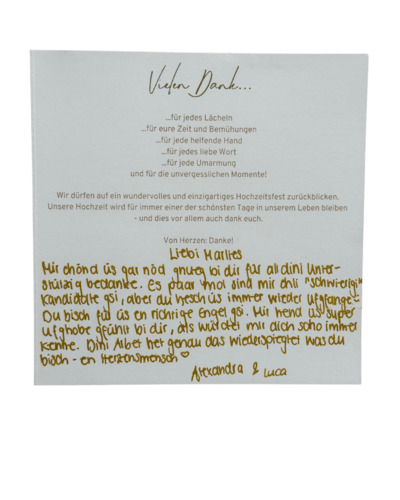 Vielen Dank...
...für jedes Lächeln
...für eure Zeit und Bemühungen
...für jede helfende Hand
...für jedes liebe Wort
...für jede Umarmung
und für die unvergesslichen Momente!
Wir dürfen auf ein wundervolles und einzigartiges Hochzeitsfest zurückblicken.
Unsere Hochzeit wird für immer einer der schönsten Tage in unserem Leben bleiben
- und dies vor allem auch dank euch.
Von Herzen: Danke!
Liebi Marlies
Mir chönd üs gar nöd gnueg bi dir für all dini Unter-
stützig bedanke. Es paar mol sind mir chli "schwierigi"
Kandidate gsi, aber du hesch üs immer wieder ufgfange.
Du bisch für üs en richtige Engel gsi. Mir hend üs super
ufghobe gfühlt bi dir, als würdet mir dich scho immer
kenne. Dini Arbet het genau das wiederspieglet was du
bisch - en Herzensmensch ♡
Alexandra & Luca